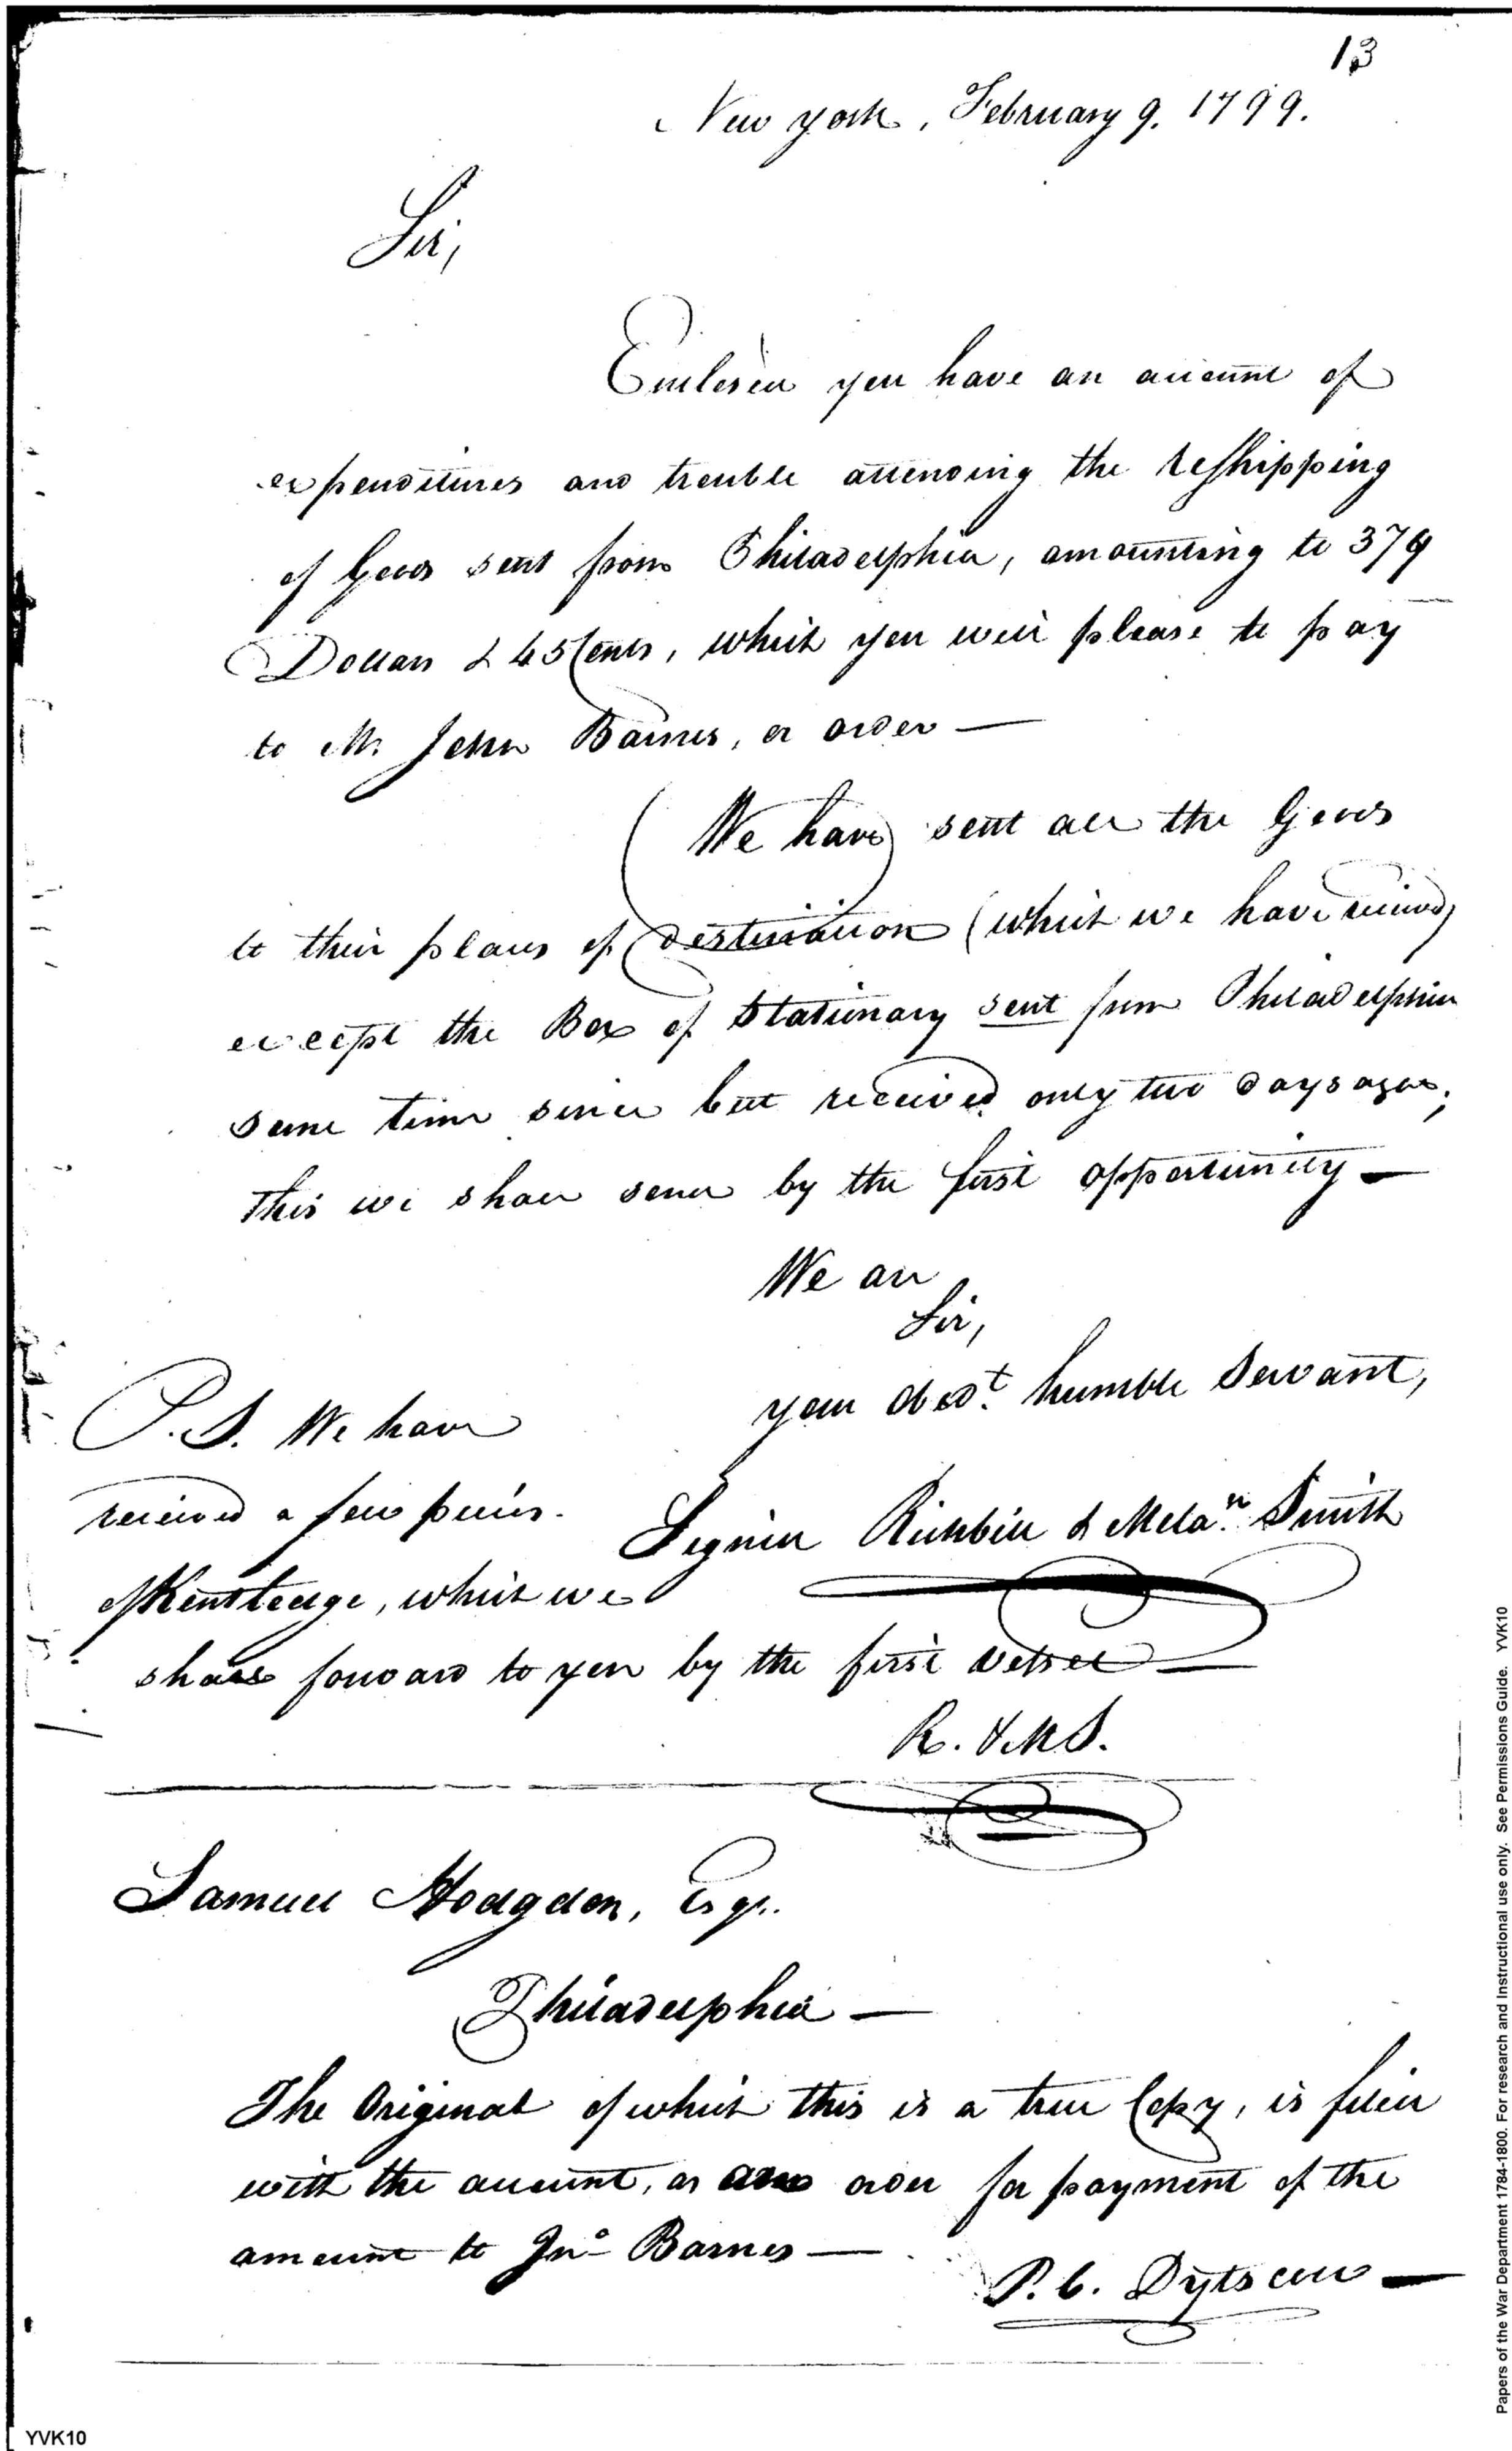 13
New York, February 9. 1799.
Sir,
Enclosed you have an account of
expenditures and trouble attending the reshipping
of Goods sent from Philadelphia, amounting to 379
Dollars & 45 Cents, which you will please to pay
to Mr. John Barnes, or order —
We have sent all the Goods
to their places of destination (which we have received)
except the Box of Stationary sent from Philadelphia
some time since but received only two days agoe,
this we shall send by the first opportunity —
We are
Sir,
your obedt. humble Servant,
Signed Richbill & Melan. Smith
P.S. We have
received a few pieces
of Kentledge, which we
shall forward to you by the first vessel —
R. & M S.
Samuel Hodgdon, Esqr.
Philadelphia —
The Original of which this is a true Copy, is filed
with the account, as an order for payment of the
amount to Jno. Barnes —
P. C.
YVK10
Papers of the War Department 1784-1800. For research and Instructional use only. See Permissions Guide. YVK10